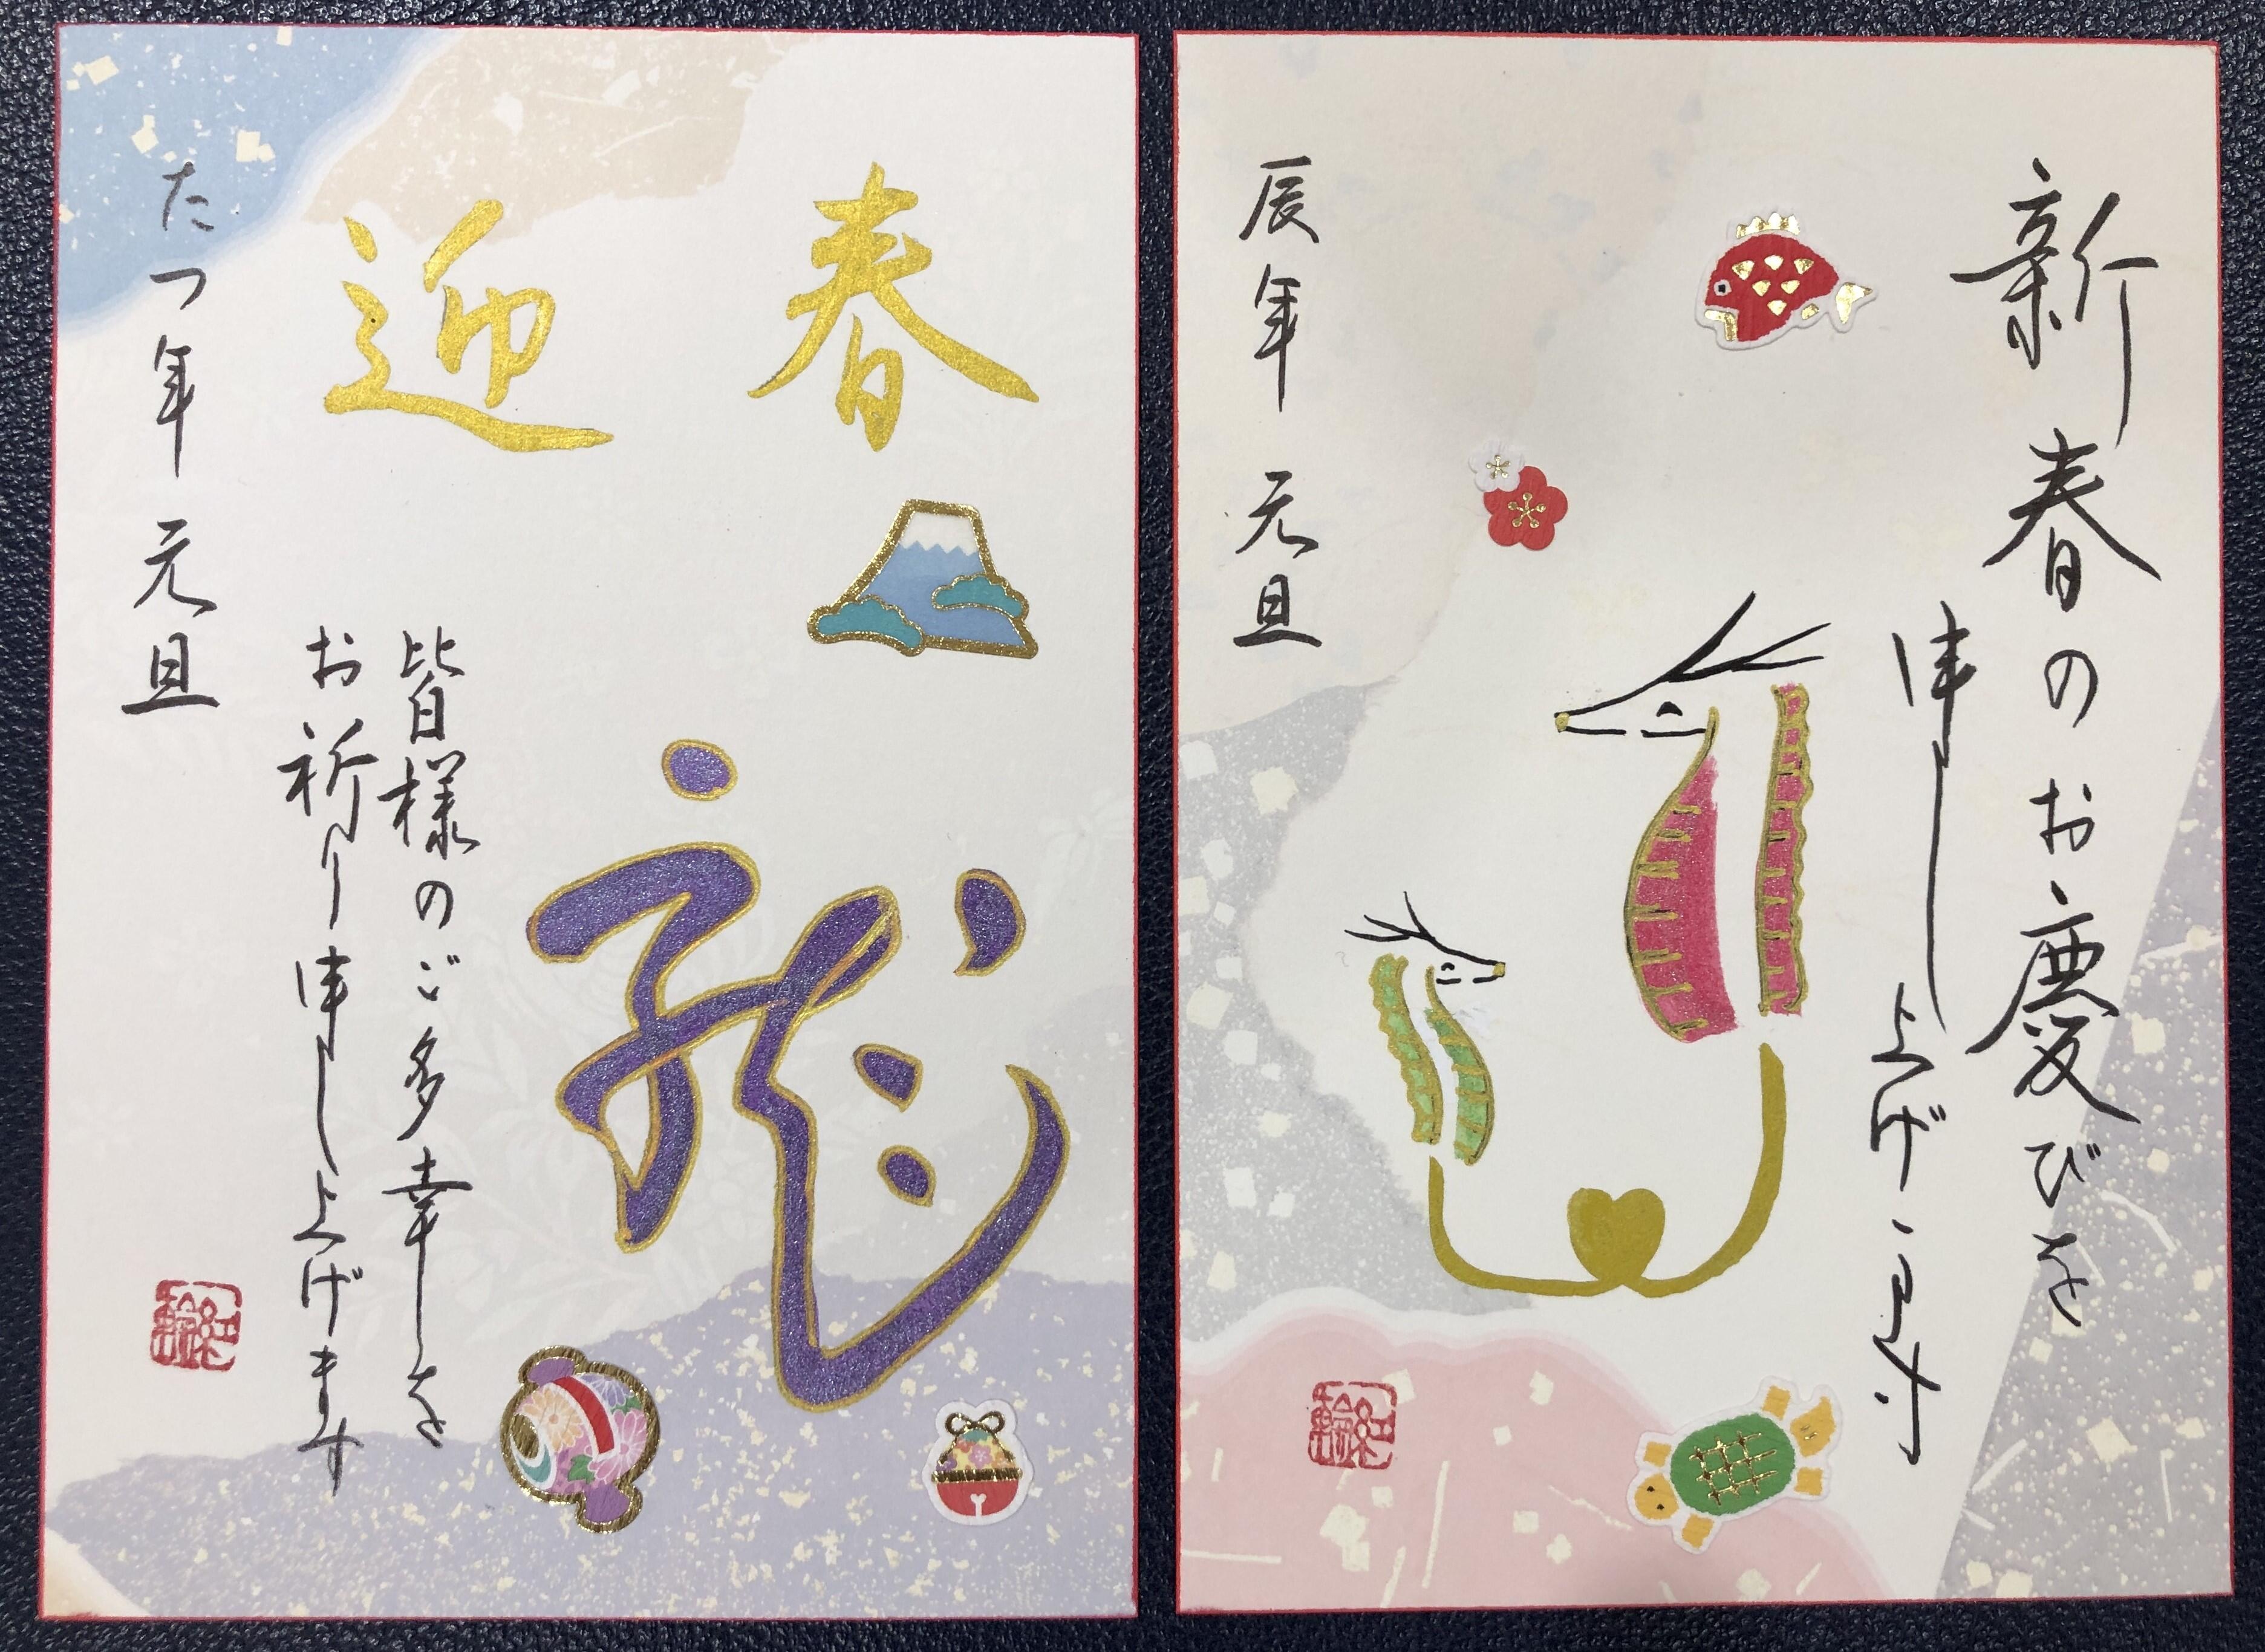 迎春
龍
皆様のご多幸を
お祈り申し上げます
たつ年 元旦
新春のお慶びを
申し上げます
辰年 元旦